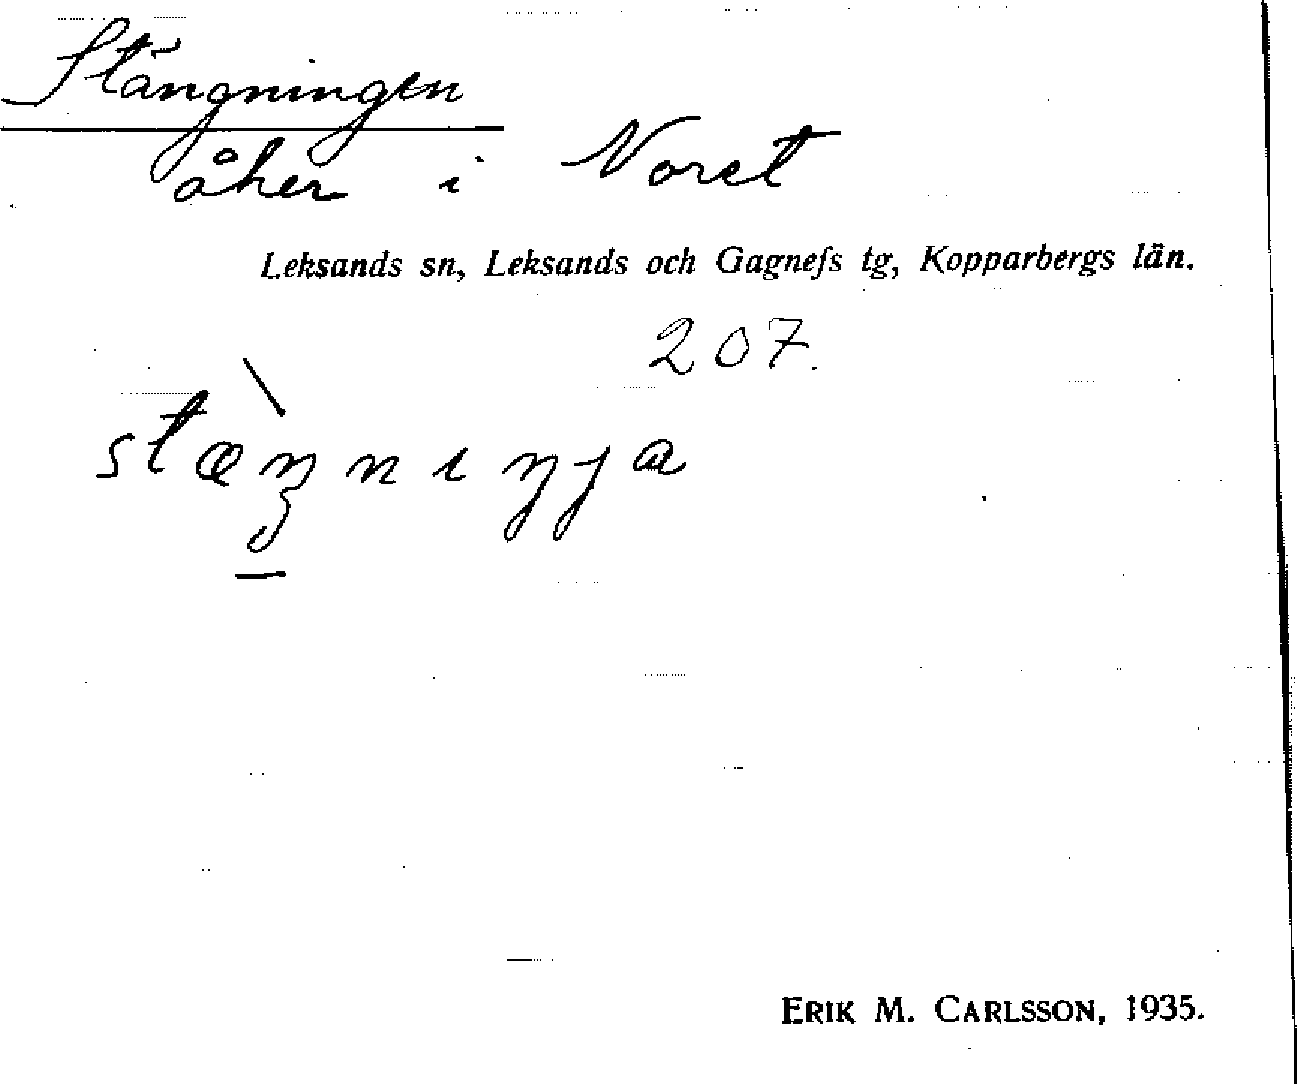 Stängningen
åker i Noret
Leksands sn, Leksands och Gagnefs tg, Kopparbergs län.
207.
stæ̀ŋnıŋja
ERIK M. CARLSSON, 1935.